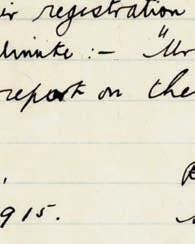 ir registration
Minute :- "Mr
report on the
915.